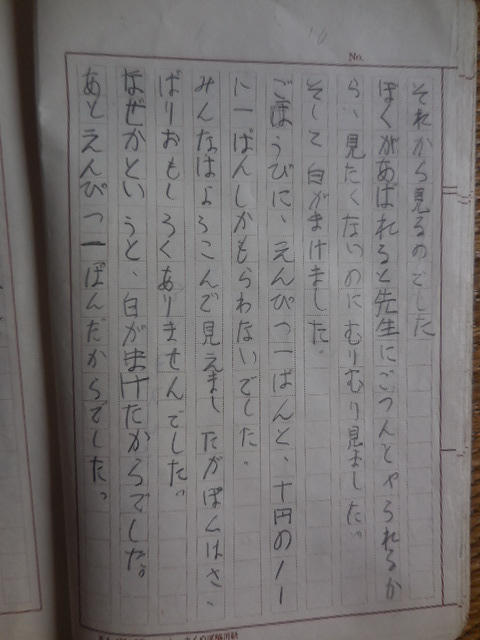 No.
それから見るのでした
ぼくがあばれると先生にごつんとやられるか
ら、見たくないのにむりむり見ました。
そして白がまけました。
ごほうびに、えんぴつ一ぽんと、十円のノー
に一ばんしかもらわないでした。
みんなはよろこんで見えましたがぼくはさ、
ぱりおもしろくありませんでした。
なぜかというと、白がまけたからでした。
あとえんぴつ一ぽんだからでした。